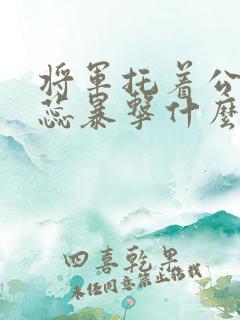 将军托着公
蕊暴撃什麼
四喜乾果
未经同意禁止转载